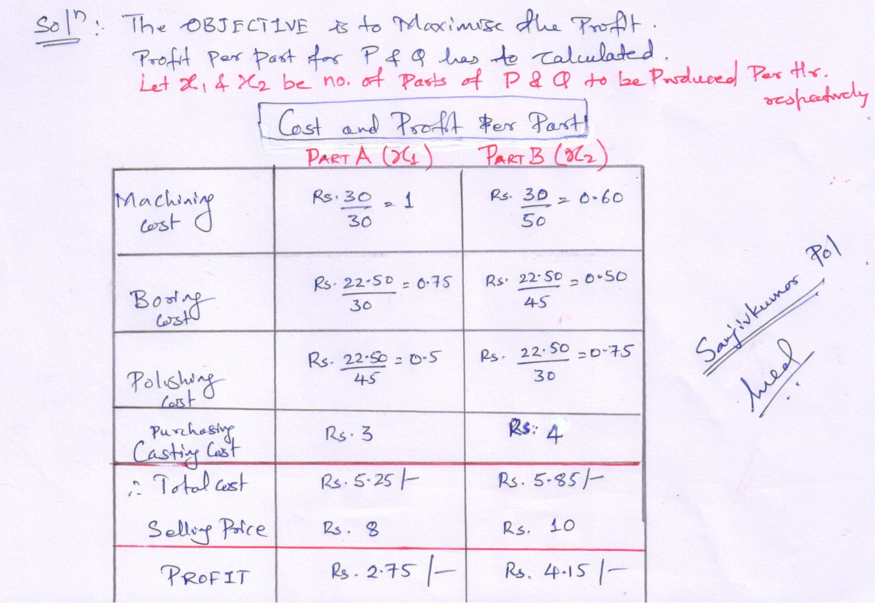 Solⁿ: The OBJECTIVE is to Maximise the Profit.
Profit per part for P & Q has to calculated.
Let x₁ & x₂ be no. of Parts of P & Q to be Produced Per Hr. respectively
Cost and Profit Per Part
PART A (x₁) PART B (x₂)
Machining cost Rs. 30/30 = 1 Rs. 30/50 = 0.60
Boring cost Rs. 22.50/30 = 0.75 Rs. 22.50/45 = 0.50
Polishing cost Rs. 22.50/45 = 0.5 Rs. 22.50/30 = 0.75
Purchasing Casting Cost Rs. 3 Rs: 4
∴ Total cost Rs. 5.25/- Rs. 5.85/-
Selling Price Rs. 8 Rs. 10
PROFIT Rs. 2.75/- Rs. 4.15/-
Sanjivkumar Pol